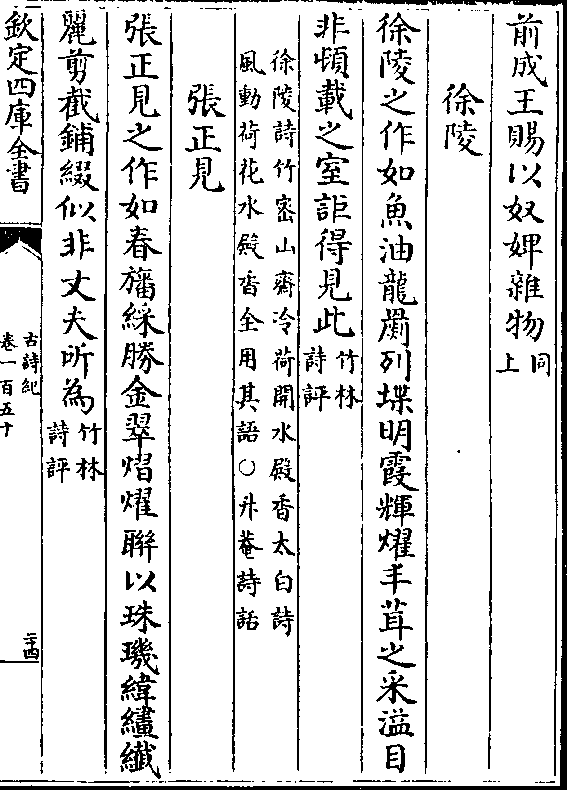 前成王賜以奴婢雜物同上
徐陵
徐陵之作如魚油龍罽列堞明霞輝燿丰茸之采溢目
非頓載之室詎得見此竹林詩評
徐陵詩竹密山齋冷荷開水殿香太白詩
風動荷花水殿香全用其語○升菴詩話
張正見
張正見之作如春旛綵勝金翠熠燿聯以珠璣緯繣纖
麗剪截鋪綴似非丈夫所為竹林詩評
欽定四庫全書
古詩紀
卷一百五十
二十四